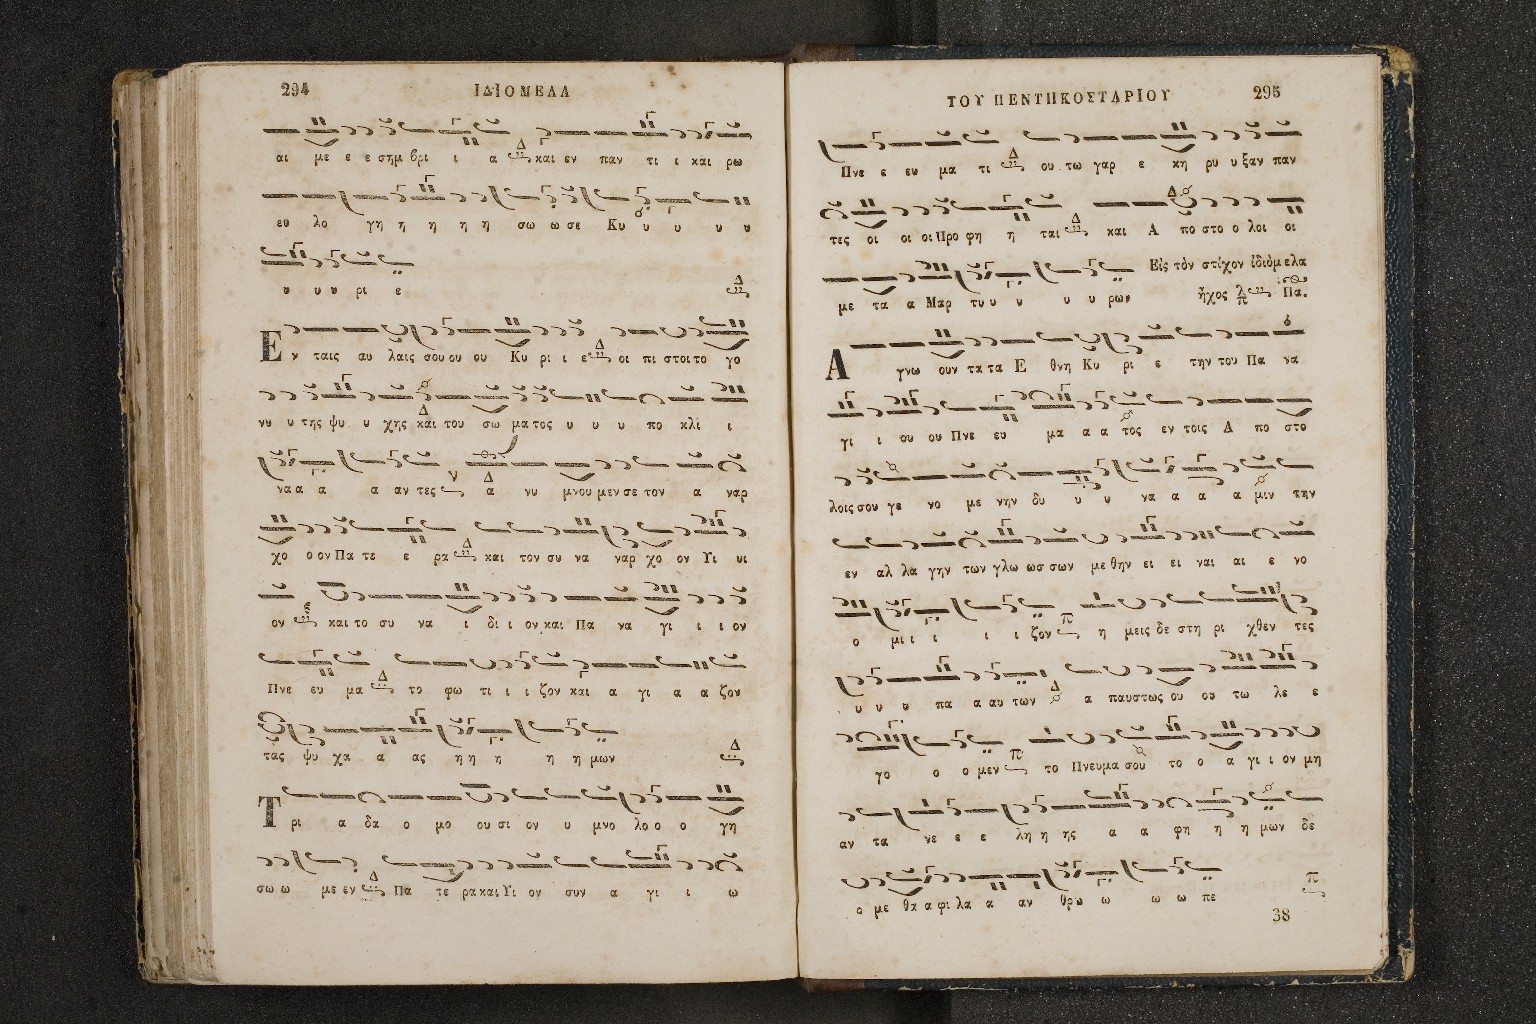 294 ΙΔΙΟΜΕΛΑ
αι με ε ε σημ βρι ι α και εν παν τι ι και ρω
ευ λο γη η η η η σω ω σε Κυ υ υ υ υ
υ υ υ ρι ε
Ε ν ταις αυ λαις σου ου ου Κυ ρι ι ε οι πι στοι το γο
νυ υ της ψυ υ χης και του σω μα τος υ υ υ πο κλι ι
να α α α αν τες α νυ μνου μεν σε τον α ναρ
χο ο ον Πα τε ε ρα και τον συ να ναρ χο ον Υι υι
ον και το συ να ι δι ι ον και Πα να γι ι ι ον
Πνε ευ μα το φω τι ι ι ζον και α γι α α ζον
τας ψυ χα α ας η η η η η μων
Τ ρι α δα ο μο ου σι ον υ μνο λο ο ο γη
σω ω με εν Πα τε ρα και Υι ον συν α γι ι ω
ΤΟΥ ΠΕΝΤΗΚΟΣΤΑΡΙΟΥ 295
Πνε ε ευ μα τι ου τω γαρ ε κη ρυ υ ξαν παν
τες οι οι οι Προ φη η ται και Α πο στο ο λοι οι
με τα α Μαρ τυ υ υ υ υ ρων Εἰς τὸν στίχον ἰδιόμελα
ἦχος Πα.
Α γνω ουν τα τα Ε θνη Κυ ρι ε την του Πα να
γι ι ου ου Πνε ευ μα α α τος εν τοις Α πο στο
λοις σου γε νο με νην δυ υ υ να α α α μιν την
εν αλ λα γην των γλω ωσ σων με θην ει ει ναι αι ε νο
ο μι ι ι ι ι ζον η μεις δε στη ρι χθεν τες
υ υ υ πα α αυ των α παυστως ου ου τω λε ε
γο ο ο μεν το Πνευμα σου το ο α γι ι ον μη
αν τα νε ε ε λη η ης α α φη η η μων δε
ο με θα α φι λα α αν θρω ω ω ω πε
38